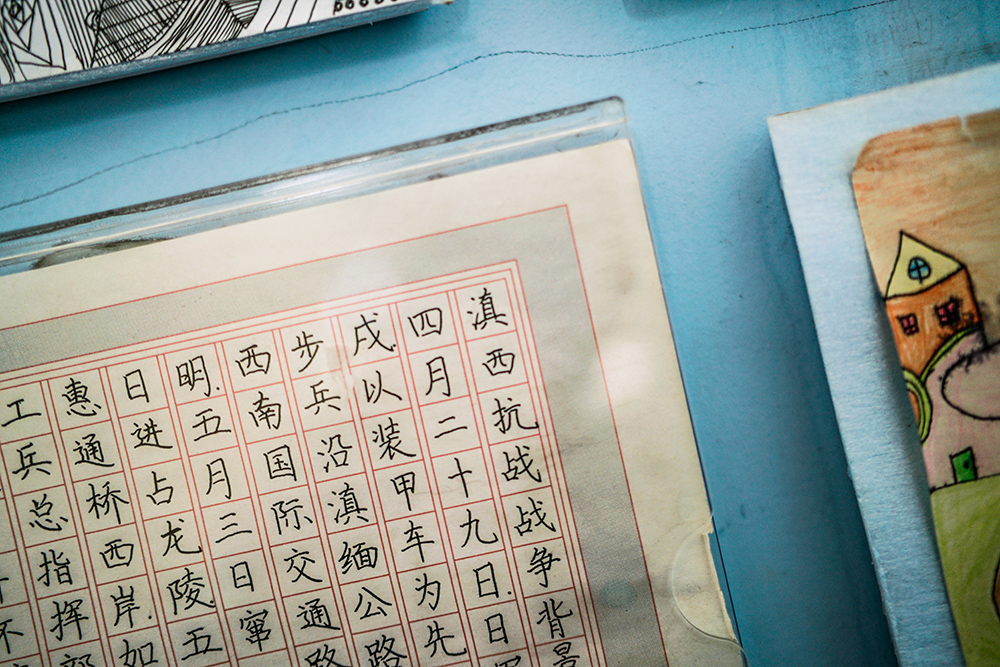 滇西抗战战争背景
四月二十九日.日
戌.以装甲车为先
步兵沿滇缅公路
西南国际交通路
明.五月三日窜
日进占龙陵.五
惠通桥西岸.如
工兵总指挥部